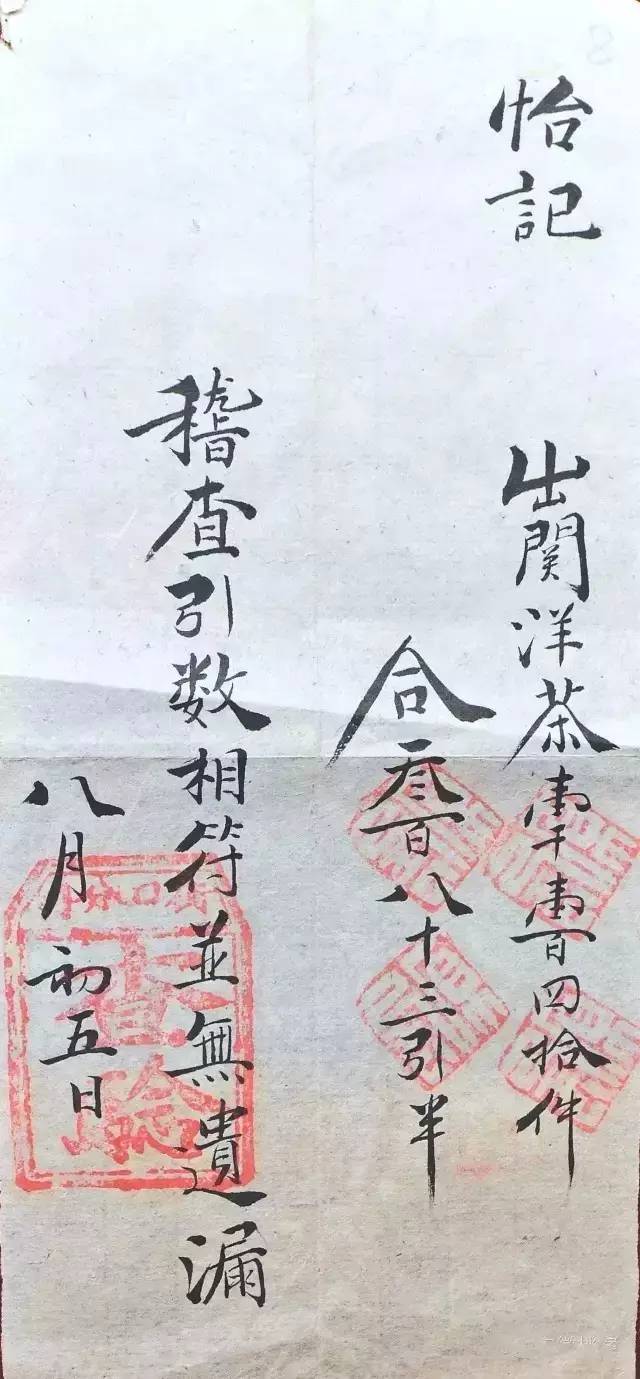 怡記
出関洋茶壹千壹百四拾件
合叁百八十三引半
稽查引数相符並無遺漏
八月初五日
查驗
8